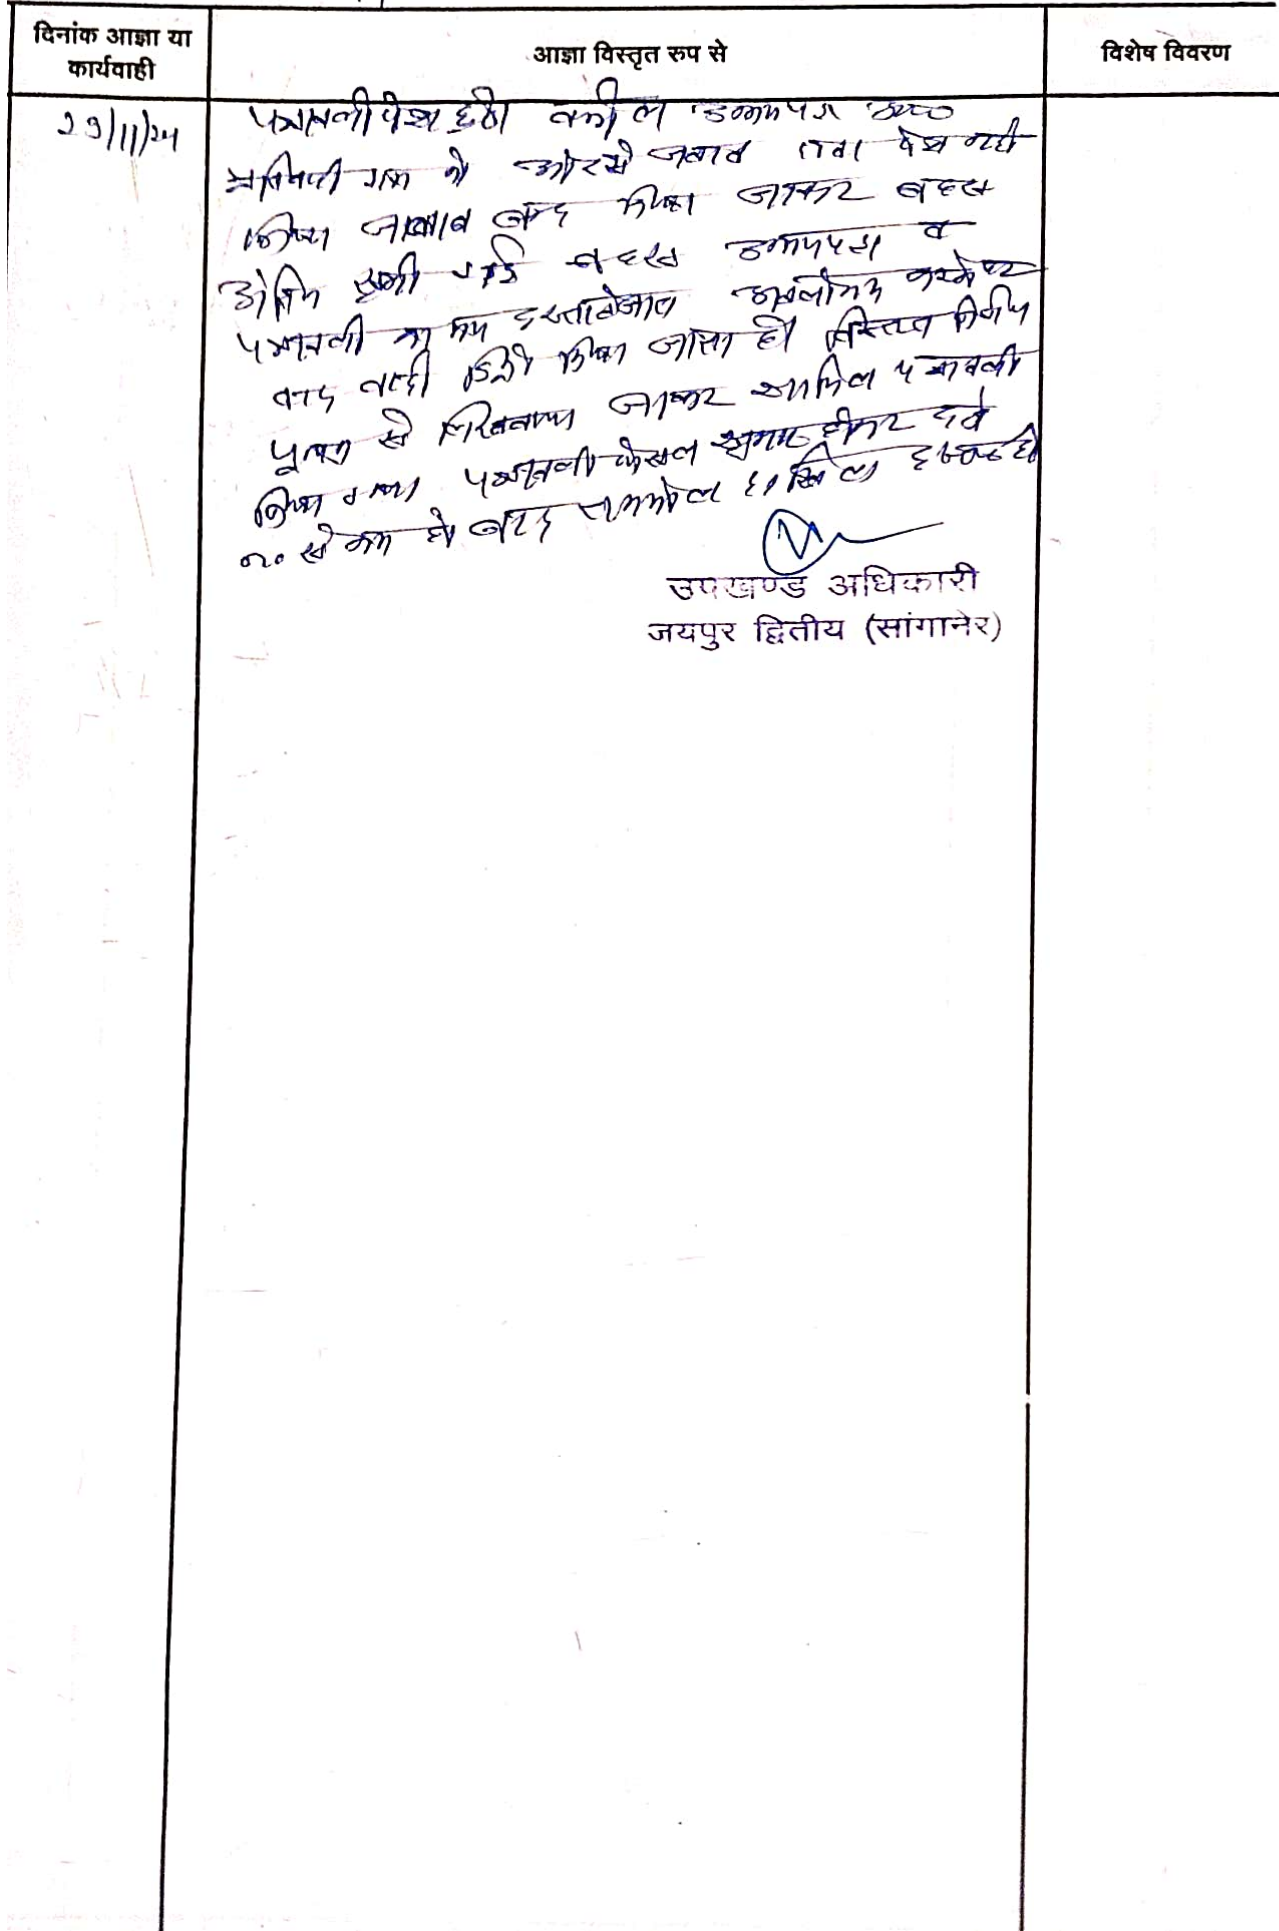 दिनांक आज्ञा या
कार्यवाही
आज्ञा विस्तृत रूप से
विशेष विवरण
29/11/24
पत्रावली पेश हुई। वकील उभयपक्ष उप०
प्रतिवादी गण की ओर से जवाब दावा पेश नहीं
किया जवाब बन्द किया जाकर बहस
अंतिम सुनी गई बहस उभयपक्ष व
पत्रावली का मय दस्तावेजात अवलोकन करने पर
वाद वादी डिक्री किया जाता है। विस्तृत निर्णय
पृथक से लिखवाया जाकर शामिल पत्रावली
किया गया पत्रावली फैसल शुमार होकर दर्ज
न० से कम हो बाद तकमील दाखिल दफ्तर हो
उपखण्ड अधिकारी
जयपुर द्वितीय (सांगानेर)